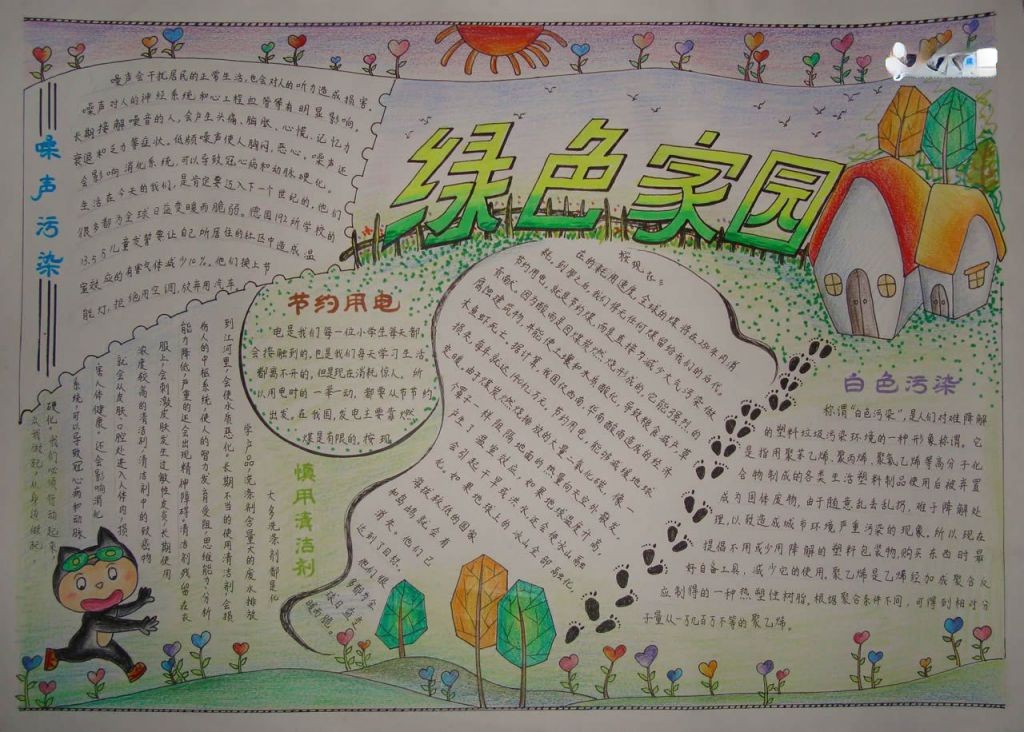 绿色家园
噪声污染
噪声会干扰居民的正常生活,也会对人的听力造成损害.
噪声对人的神经系统和心工程血管等有明显影响。
长期接解噪音的人,会产生头痛、脑胀、心慌、记忆力
衰退和乏力等症状。低频噪声使人胸闷,恶心。噪声还
会影响消化系统,可以导致冠心病和动脉硬化。
生活在今天的我们,是肯定要迈入下一个世纪的,他们
很多都为全球日益变暖而脆弱。德国192所学校的
13.5万儿童发誓要让自己所居住的社区中造成温
室效应的有害气体减少10%。他们换上节
能灯,拒绝用空调,放弃用汽车
节约用电
电是我们每一位小学生每天都
会接触到的,也是我们每天学习生活
都离不开的,但是现在消耗惊人,所
以用电时的一举一动,都要从节节约
出发,在我国,发电主要靠燃
煤是有限的,按现
按现
在的耗用速度,全球的煤将在258年内消
耗,到那之后,我们将无任何煤留给我们的后代。
节约用电,就是节约煤,而是直接为减少大气污染做
贡献,因为酸雨是因煤炭燃烧形成的,它能强烈的
腐蚀建筑物,并能使土壤和水质酸化,导致粮食减产,草
木鱼虾死亡。据计算,我国仅西南、华南酸雨造成的经济
损失,每年就达140亿万元。节约用电,能够减缓地球
变暖,由于煤炭燃烧排放的大量二氧化碳,像一
个罩子一样阻隔地面的热量向太空外散发,
产生了温室效应。如果地球温度升高,
会引起干旱或洪水,还会使冰山融
化。如果地球上的冰山全部融化,
海拔较低的国家
和岛屿就会有
消失。他们已
达到了目标,
他们很
多都为全
球日益变
暖而脆弱。
慎用清洁剂
大多洗涤剂都是化
学产品,洗涤剂含量大的废水排放
到江河里,会使水质恶化。长期不当的使用清洁剂会损
伤人的中枢系统,使人的智力发育受阻,思维能力、分析
能力降低,严重的还会出现精神障碍。清洁剂残留在衣
服上,会刺激皮肤发生过敏性皮炎,长期使用
浓度较高的清洁剂,清洁剂中的致癌物
就会从皮肤、口腔处进入人体内,损
害人体健康,还会影响消化
系统,可以导致冠心病和动脉
硬化。我们必须行动起来,
从我做起,从身边做起
白色污染
称谓“白色污染”,是人们对难降解
的塑料垃圾污染环境的一种形象称谓。它
是指用聚苯乙烯、聚丙烯、聚氯乙烯等高分子化
合物制成的各类生活塑料制品使用后被弃置
成为固体废物,由于随意乱丢乱扔,难于降解处
理,以致造成城市环境严重污染的现象,所以现在
提倡不用或少用降解的塑料包装物,购买东西时最
好自备工具,减少它的使用,聚乙烯是乙烯经加成聚合反
应制得的一种热塑性树脂。根据聚合条件不同,可得到相对分
子量从一万几百万不等的聚乙烯。